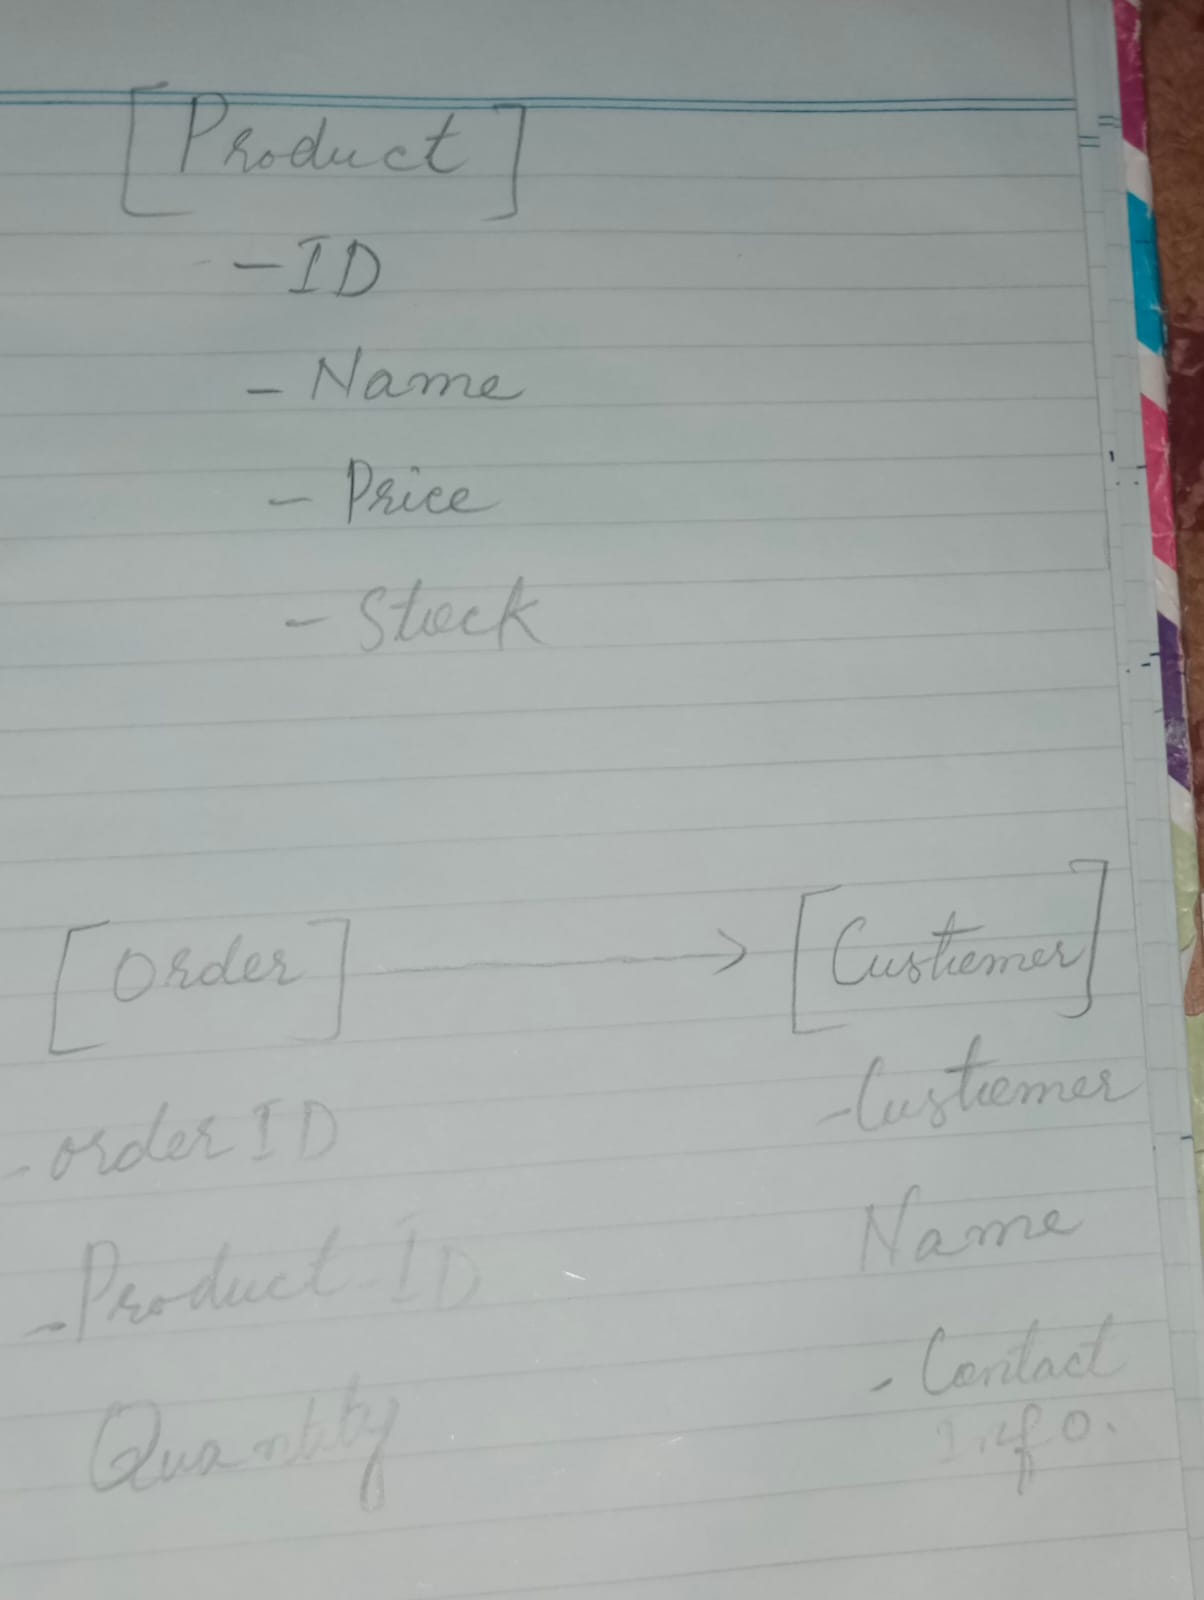 [Product]
- ID
- Name
- Price
- Stock
[Order] → [Customer]
- order ID
- Product ID
Quantity
- Customer
Name
- Contact
Info.